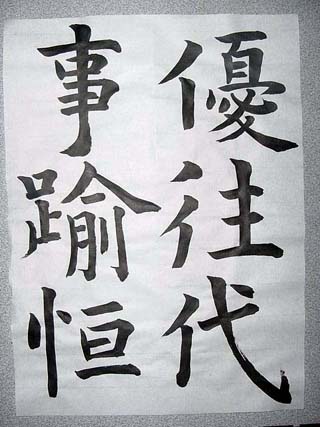 優往代
事踰恒